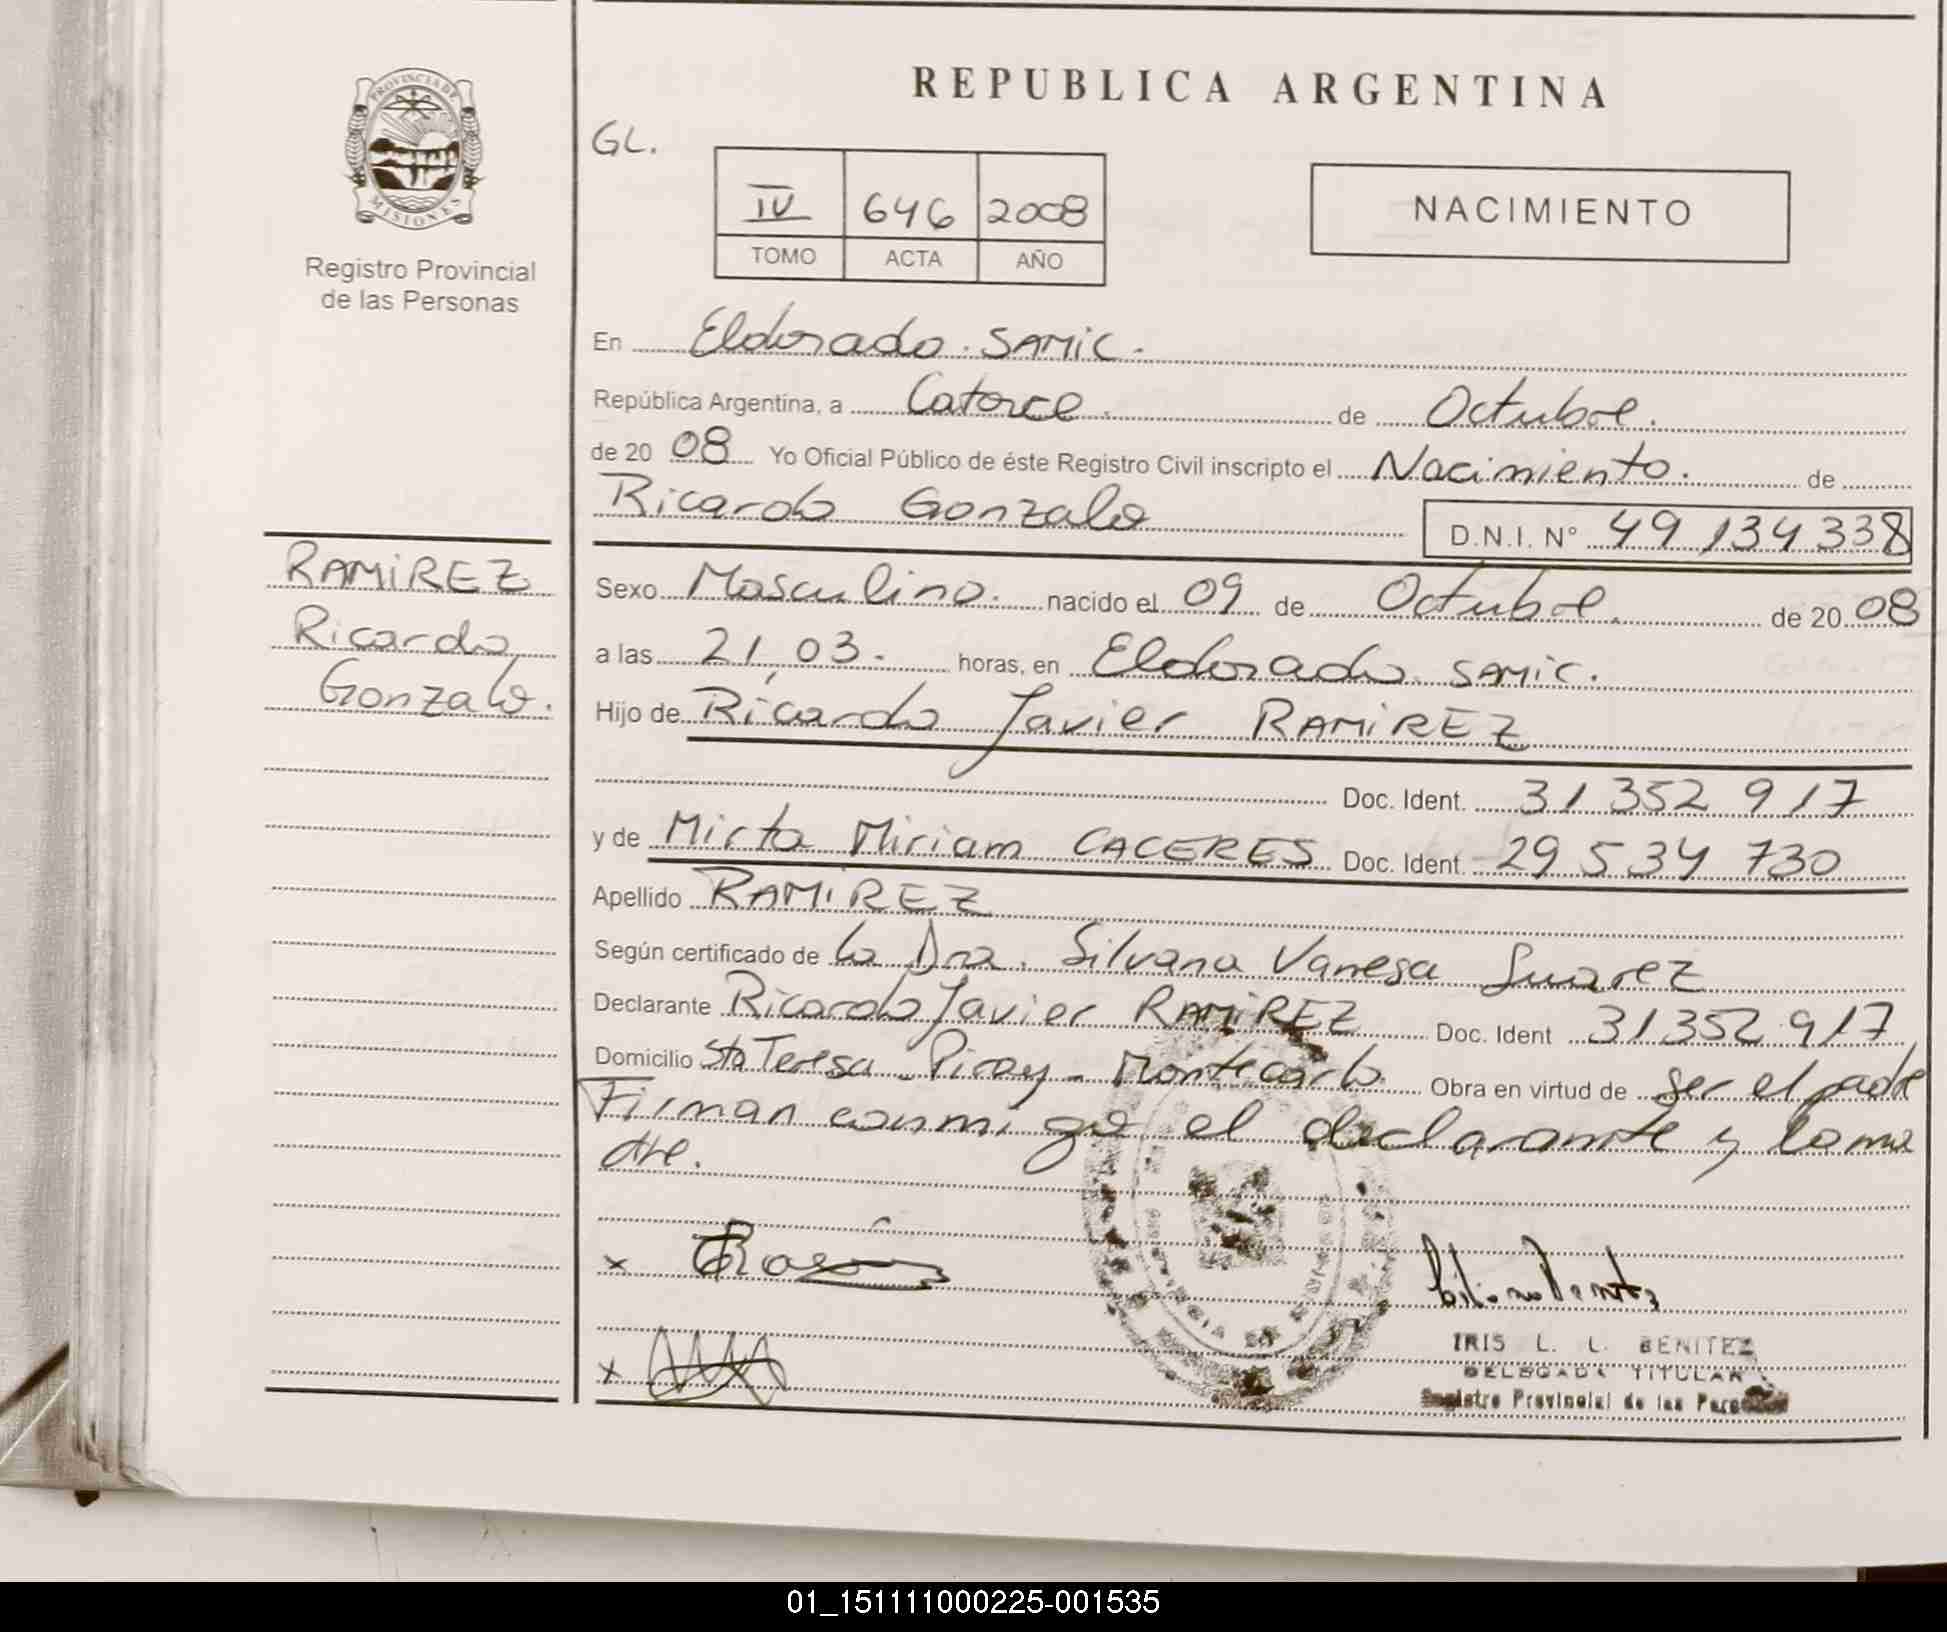 PROVINCIA DE
MISIONES
Registro Provincial
de las Personas
RAMIREZ
Ricardo
Gonzalo.
REPUBLICA ARGENTINA
GL.
IV 646 2008
TOMO ACTA AÑO
NACIMIENTO
En Eldorado. SAMIC.
República Argentina, a Catorce. de Octubre.
de 20 08 Yo Oficial Público de éste Registro Civil inscripto el Nacimiento. de
Ricardo Gonzalo D.N.I. Nº 49 134 338
Sexo Masculino. nacido el 09 de Octubre. de 20 08
a las 21,03. horas, en Eldorado. SAMIC.
Hijo de Ricardo Javier RAMIREZ
Doc. Ident. 31 352 917
y de Mirta Miriam CACERES Doc. Ident. 29 534 730
Apellido RAMIREZ
Según certificado de la Dra. Silvana Vanesa Suarez
Declarante Ricardo Javier RAMIREZ Doc. Ident 31352.917
Domicilio Sta Teresa - Piray - Montecarlo. Obra en virtud de ser el padre
Firman conmigo el declarante y la ma
dre.
x
x
IRIS L. L. BENITEZ
DELEGADA TITULAR
Registro Provincial de las Personas
01_151111000225-001535